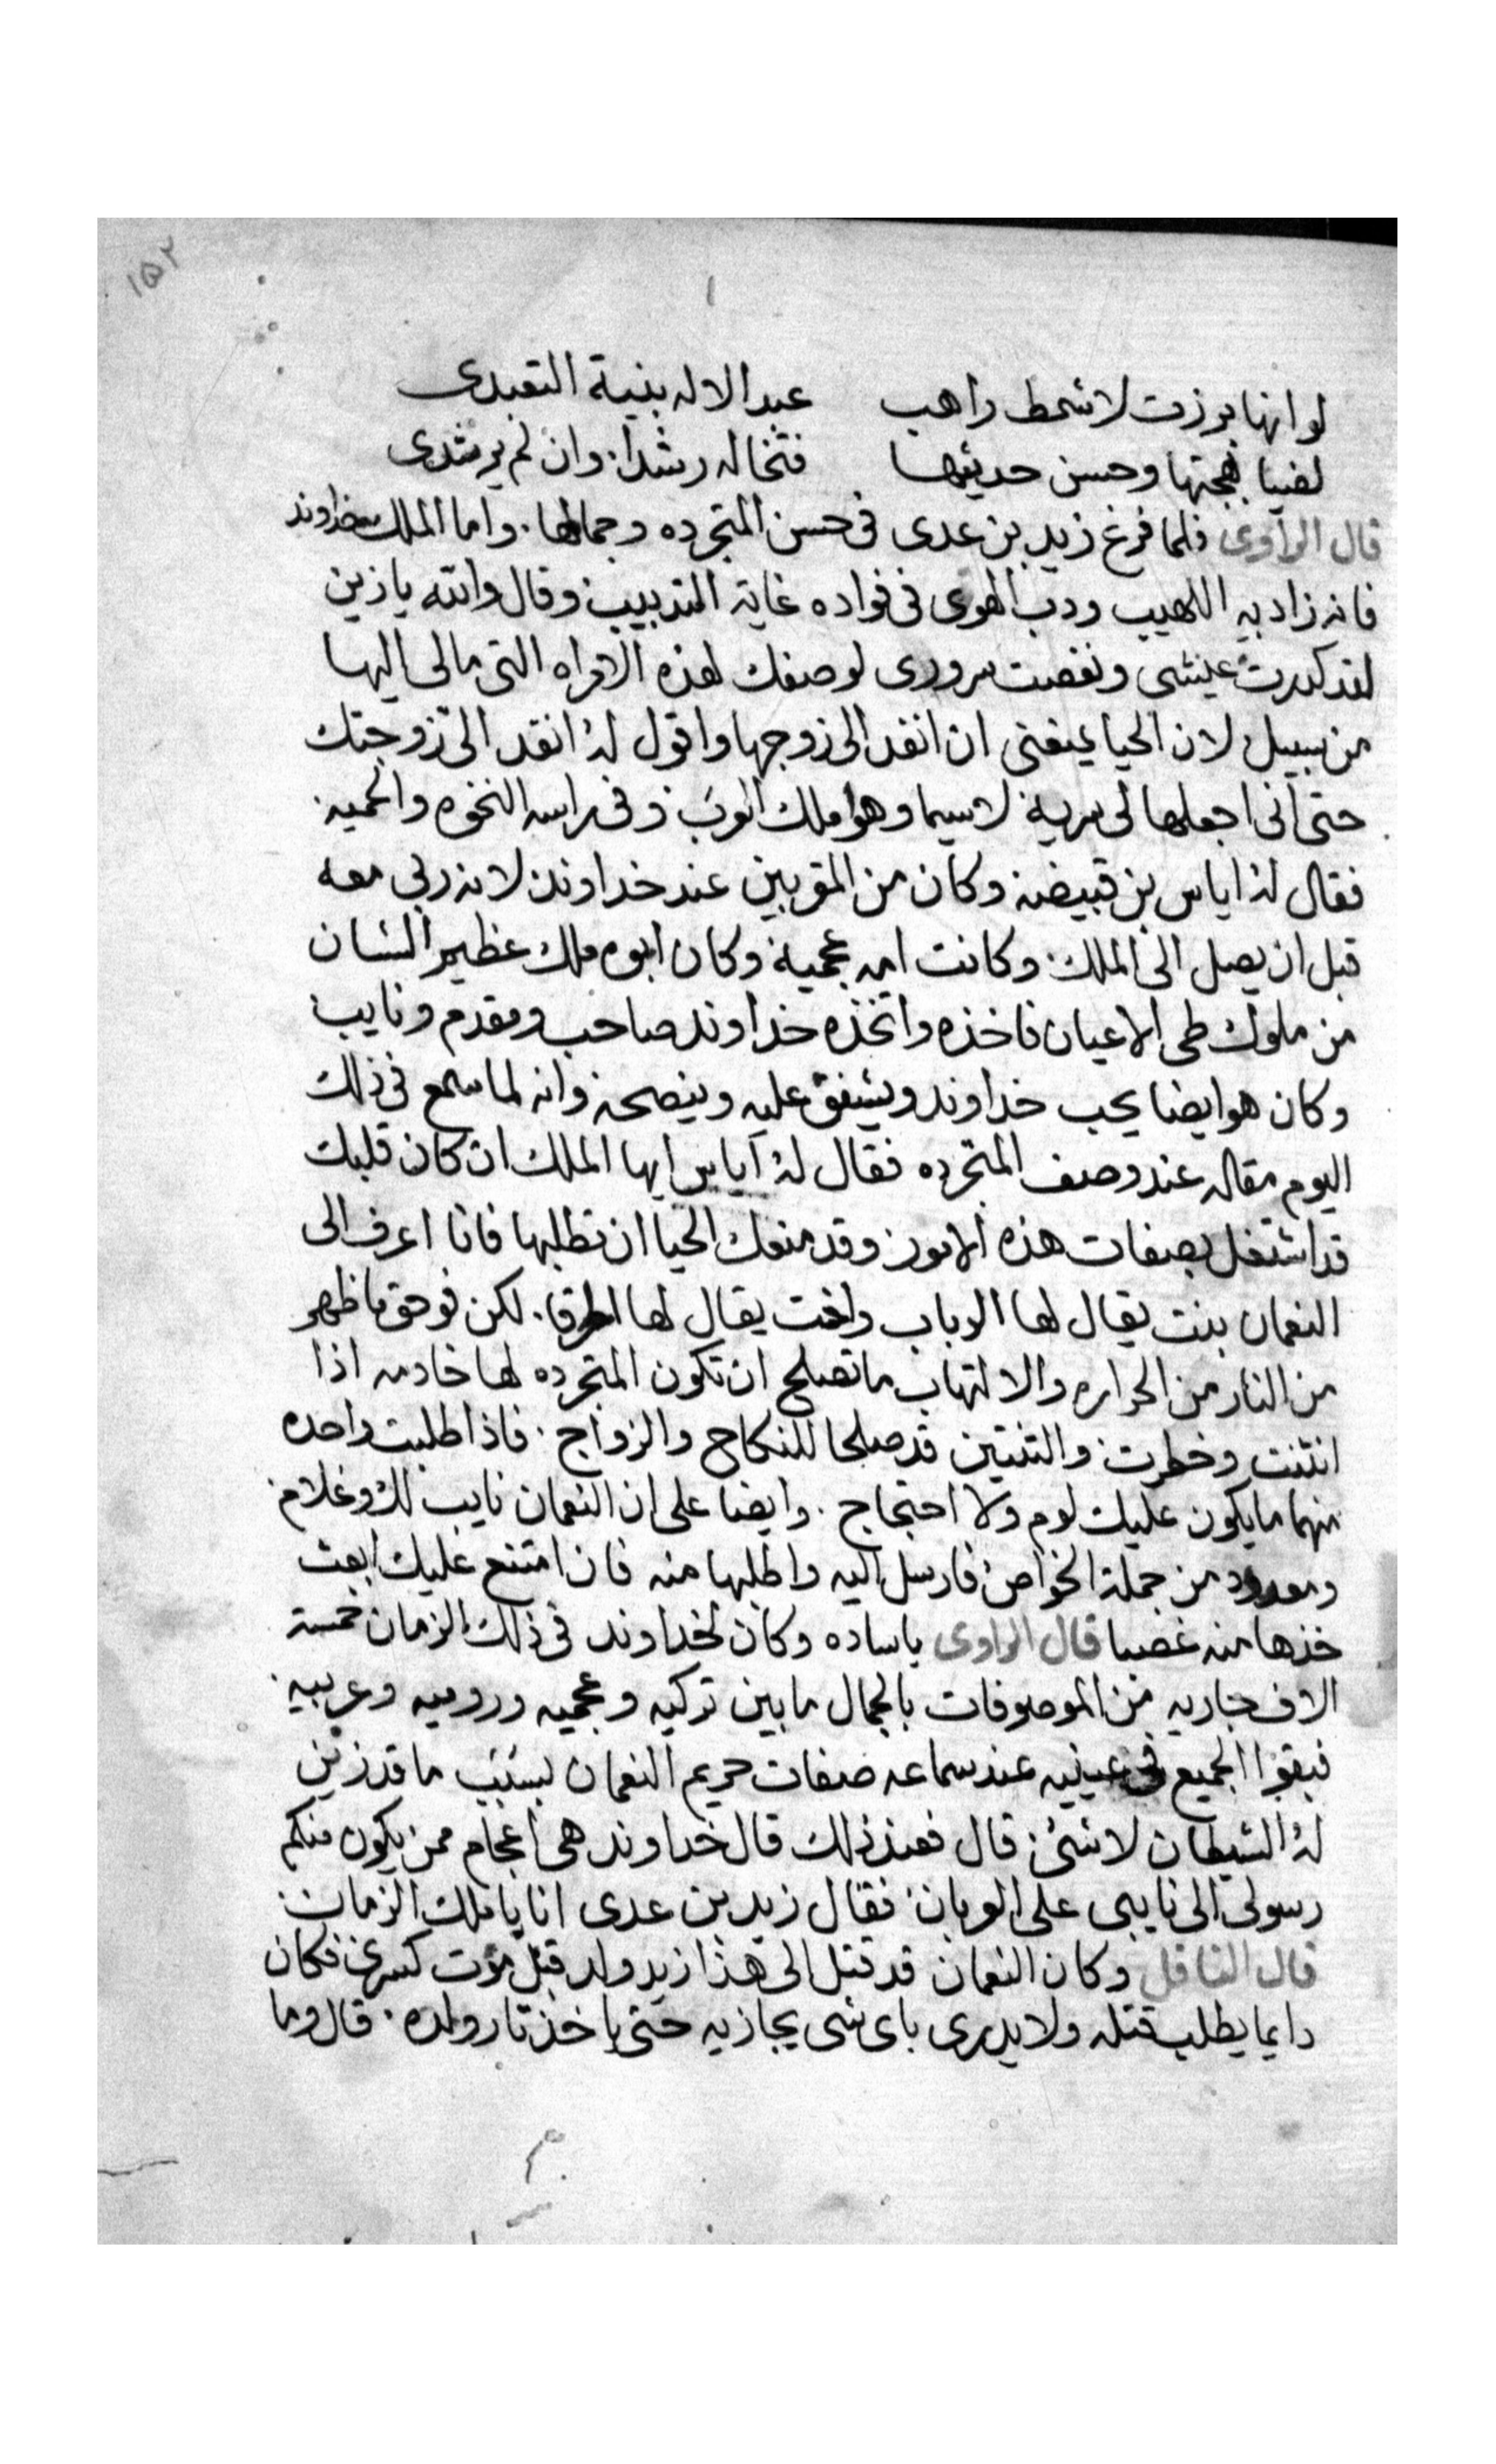 ١٥٢
لو انها برزت لاشمط راهب عبد الاله بنية التعبدى
لصبا لهجتها وحسن حديثها فتخاله رشدا وان لم يرشدى
قال الراوى فلما فرغ زيد بن عدى فى حسن المتجرده وجمالها. واما الملك خداوند
فانه زاد به اللهيب ودب الهوى فى فواده غاية التدبيب وقال والله يا زين
لقد كدرت عيشى ونغصت سرورى لوصفك لهذه الامراه التى مالى اليها
من سبيل لان الحيا يمنعنى ان انفد الى زوجها واقول له انفد الى زوجتك
حتى انى اجعلها لى سرية لاسيما وهو ملك العرب وفى راسه النخوه والحميه.
فقال له اياس بن قبيضه وكان من المقربين عند خداوند لانه ربى معه
قبل ان يصل الى الملك وكانت امه عجمية وكان ابوه ملك عظيم الشان
من ملوك طى الاعيان فاخذه واتخذه خداوند صاحب ومقدم ونايب
وكان هو ايضا يحب خداوند ويشفق عليه وينصحه وانه لما سمع فى ذلك
اليوم مقاله عند وصف المتجرده فقال له اياس ايها الملك ان كان قلبك
قد اشتغل بصفات هذه الامور وقد منعك الحيا ان تطلبها فانا اعرف الى
النعمان بنت يقال لها الرباب واخت يقال لها . لكن فوحق ما ظهر
من النار من الحراره والالتهاب ما تصلح ان تكون المتجرده لها خادمه اذا
انثنت وخطرت والثنتين قد صلحا للنكاح والزواج. فاذا طلبت واحده
منهما ما يكون عليك لوم ولا احتجاج. وايضا على ان النعمان نايب لك وغلام
ومعدود من جملة الخواص فارسل اليه واطلبها منه فان امتنع عليك ابعث
خذها منه غصبا قال الراوى ياساده وكان لخداوند فى ذلك الزمان خمسة
الاف جاريه من الموصوفات بالجمال ما بين تركيه وعجميه وروميه وعربيه.
فبقوا الجميع فى عينيه عند سماعه صفات حريم النعمان بسبب ما قد زين
له الشيطان لاشئ قال فعند ذلك قال خداوند هى اعجام ممن يكون منكم
رسولى الى نايبى على العربان فقال زيد بن عدى انا يا ملك الزمان
قال الناقل وكان النعمان قد قتل الى هذا زيد ولد قبل موت كسرى فكان
دايما يطلب قتله ولا يدرى باى شى يجازيه حتى ياخذ تار ولده. قال وما